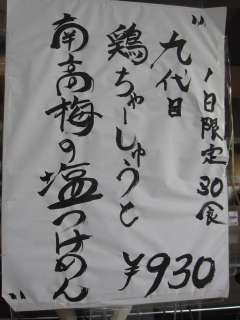 〃1日限定30食
九代目
鶏ちゃーしゅうと
南高梅の塩つけめん〃
¥930